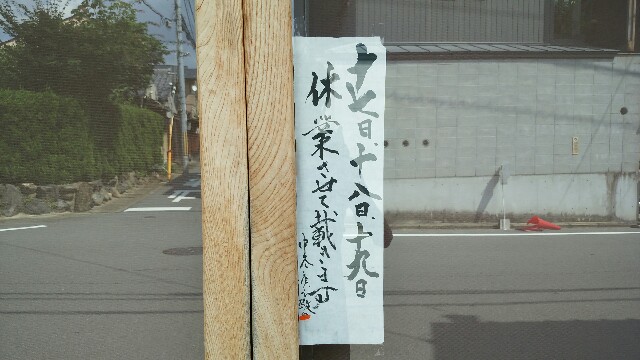 十七日、十八日、十九日
休業させて戴きます